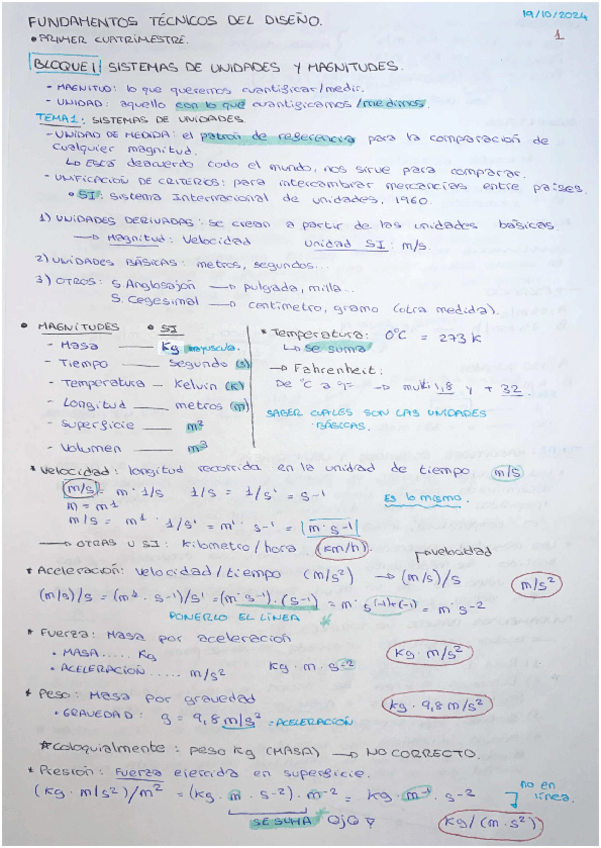 FUNDAMENTOS TÉCNICOS DEL DISEÑO.
19/10/2024
• PRIMER CUATRIMESTRE.
1
BLOQUE 1 | SISTEMAS DE UNIDADES Y MAGNITUDES.
- MAGNITUD: lo que queremos cuantificar/medir.
- UNIDAD: aquello con lo que cuantificamos/medimos.
TEMA 1: SISTEMAS DE UNIDADES
- UNIDAD DE MEDIDA: el patrón de referencia para la comparación de
cualquier magnitud.
↳ Está deacuerdo todo el mundo, nos sirve para comparar.
- UNIFICACIÓN DE CRITERIOS: para intercambiar mercancías entre países.
• SI: Sistema Internacional de unidades, 1960.
1) UNIDADES DERIVADAS: se crean a partir de las unidades básicas
→ Magnitud: Velocidad Unidad SI: m/s.
2) UNIDADES BÁSICAS: metros, segundos...
3) OTROS: S. Anglosajón → pulgada, milla...
S. Cegesimal → centímetro, gramo (otra medida).
• MAGNITUDES • SI
- Masa — Kg mayuscula.
- Tiempo — segundo (s)
- Temperatura — Kelvin (K)
- Longitud — metros (m)
- Superficie — m²
- Volumen — m³
* Temperatura: 0°C = 273 K
↳ se suma
→ Fahrenheit:
De °C a °F → multi 1,8 y + 32.
SABER CUALES SON LAS UNIDADES
BÁSICAS.
* Velocidad: longitud recorrida en la unidad de tiempo m/s
(m/s) = m · 1/s 1/s = 1/s¹ = s-1
m = m¹
Es lo mismo.
m/s = m¹ · 1/s¹ = m¹ · s-1 = |m · s-1|
→ OTRAS U SI: Kilometro/hora (Km/h).
velocidad
* Aceleración: velocidad/tiempo (m/s²) → (m/s)/s
m/s²
(m/s)/s = (m¹ · s-1)/s¹ = (m · s-1) · (s-1) = m · s(-1)+(-1) = m · s-2
PONERLO EL LÍNEA *
* Fuerza: Masa por aceleración
• MASA..... Kg
Kg · m/s²
• ACELERACIÓN..... m/s² Kg · m · s-2
* Peso: Masa por gravedad
Kg · 9,8 m/s²
• GRAVEDAD: g = 9,8 m/s² = ACELERACIÓN
* Coloquialmente: peso Kg (MASA) → NO CORRECTO.
* Presión: Fuerza ejercida en superficie.
(Kg · m/s²)/m² = (Kg · m · s-2) · m-2 = Kg · m-1 · s-2
no en
línea.
SE SUMA Ojo
Kg/(m·s²)